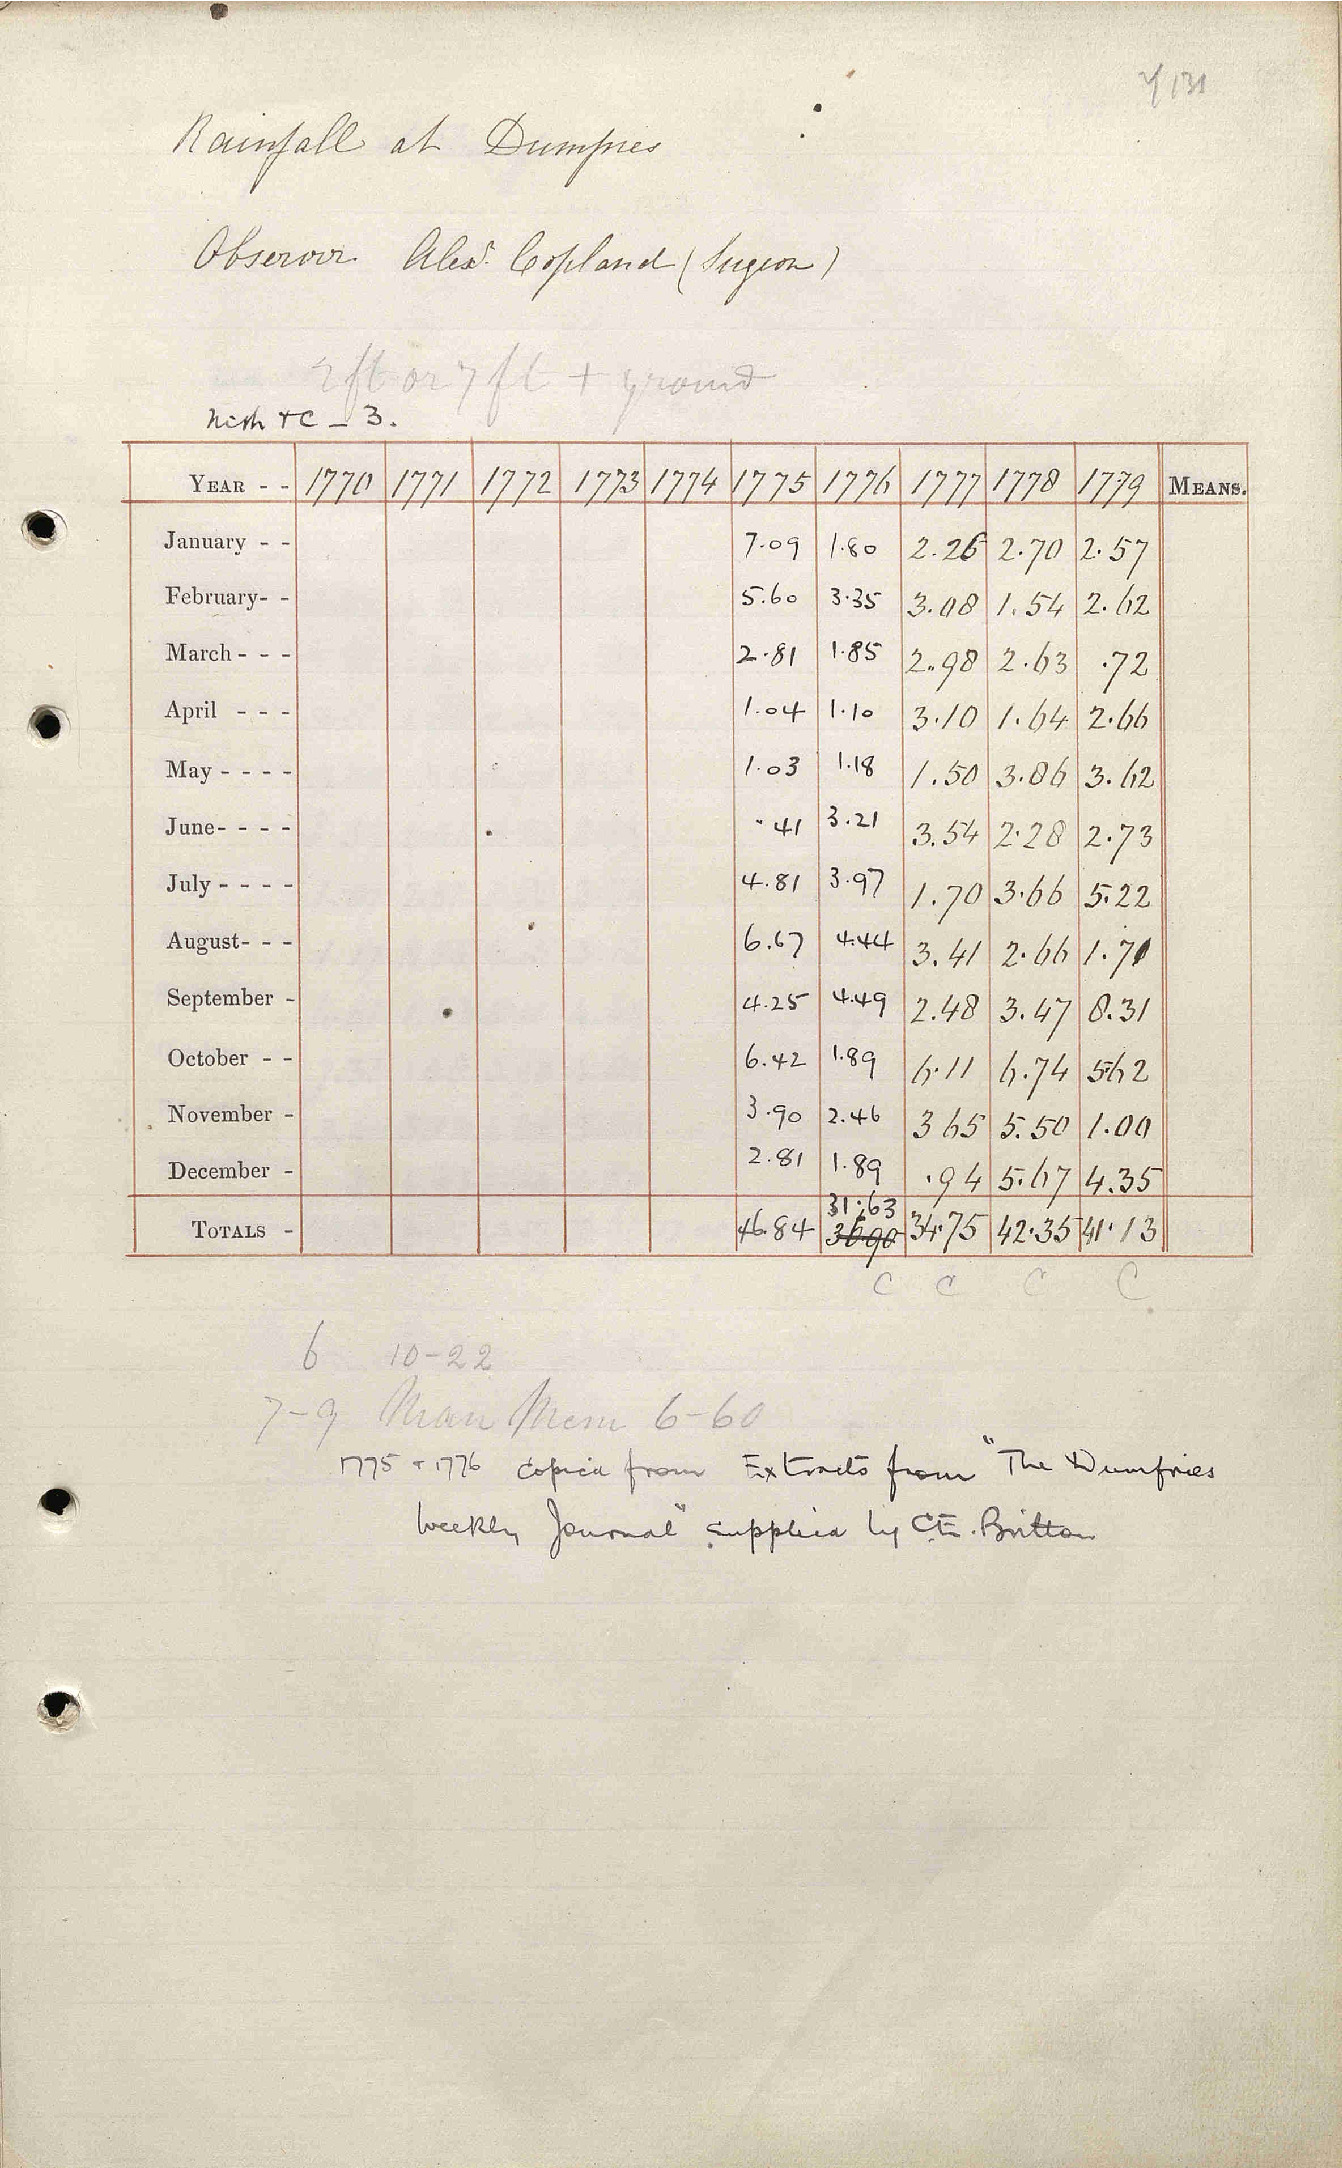 131
Rainfall at Dumfries
Observer Alexr. Copland (Surgeon)
2 ft or 7 ft + ground
Nith &c – 3.
YEAR - - 1770 1771 1772 1773 1774 1775 1776 1777 1778 1779 MEANS.
January - - 7.09 1.80 2.26 2.70 2.57
February- - 5.60 3.35 3.08 1.54 2.62
March - - - 2.81 1.85 2.98 2.63 .72
April - - - 1.04 1.10 3.10 1.64 2.66
May - - - - 1.03 1.18 1.50 3.86 3.62
June- - - - .41 3.21 3.54 2.28 2.73
July - - - - 4.81 3.97 1.70 3.66 5.22
August- - - 6.67 4.44 3.41 2.66 1.71
September - 4.25 4.49 2.48 3.47 8.31
October - - 6.42 1.89 6.11 6.74 5.62
November - 3.90 2.46 3 65 5.50 1.00
December - 2.81 1.89 .94 5.67 4.35
31.63
TOTALS - 46.84 3690 34.75 42.35 41.13
C C C C
6 10-22
7-9 Man Mem 6-60
1775 + 1776 copied from Extracts from "The Dumfries
Weekly Journal" supplied by C.E. Britton